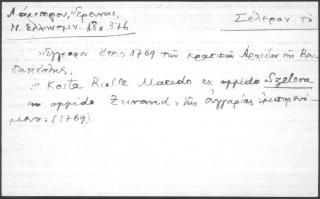 Λάμπρου, Ἔρευναι,
Ν. Ἑλληνομν. 18ο, 376
Σέλερον τὸ
Ἔγγραφον ἔτους 1769 τῶν κρατικῶν Ἀρχείων τῆς Βου-
δαπέστης.
"Kosta Rialle Macedo ex oppido Szelera
in oppido Zurand" τῆς Οὑγγαρίας
(1769).